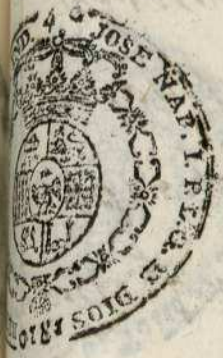 JOSE NAP. I. P. L. G. D DIOS 1810